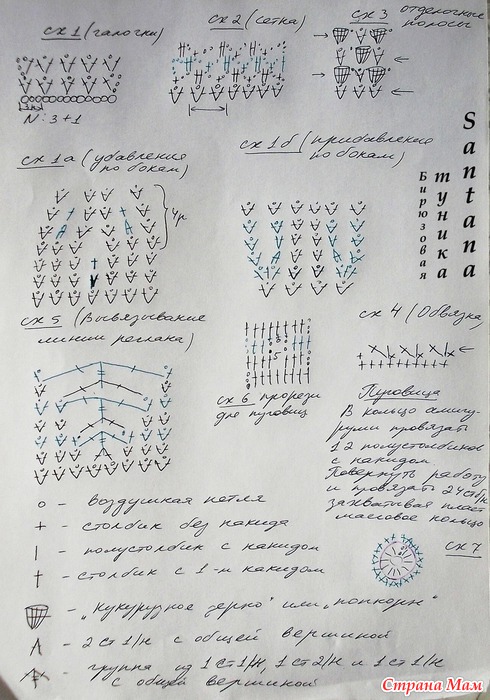 сх 1 (галочки)
сх 2 (сетка)
сх 3 отделочные
полосы
N: 3+1
сх 1а (убавления
по бокам)
сх 1б (прибавление
по бокам)
4р
Santana
туника
Бирюзовая
сх 5 (Вывязывание
линии реглана)
сх 4 (Обвязка)
5
5
сх 6 прорези
для пуговиц
Пуговица
В кольцо амигу-
руми провязать
12 полустолбиков
с накидом
Повернуть работу
и провязать 24 стб/н,
захватывая пласт-
массовое кольцо
сх 7
о – воздушная петля
+ – столбик без накида
| – полустолбик с накидом
† – столбик с 1-м накидом
– „Кукурузное зерно" или „попкорн"
– 2 ст 1/н с общей вершиной
– группа из 1 ст 1/н, 1 ст 2/н и 1 ст 1/н
с общей вершиной
Страна Мам